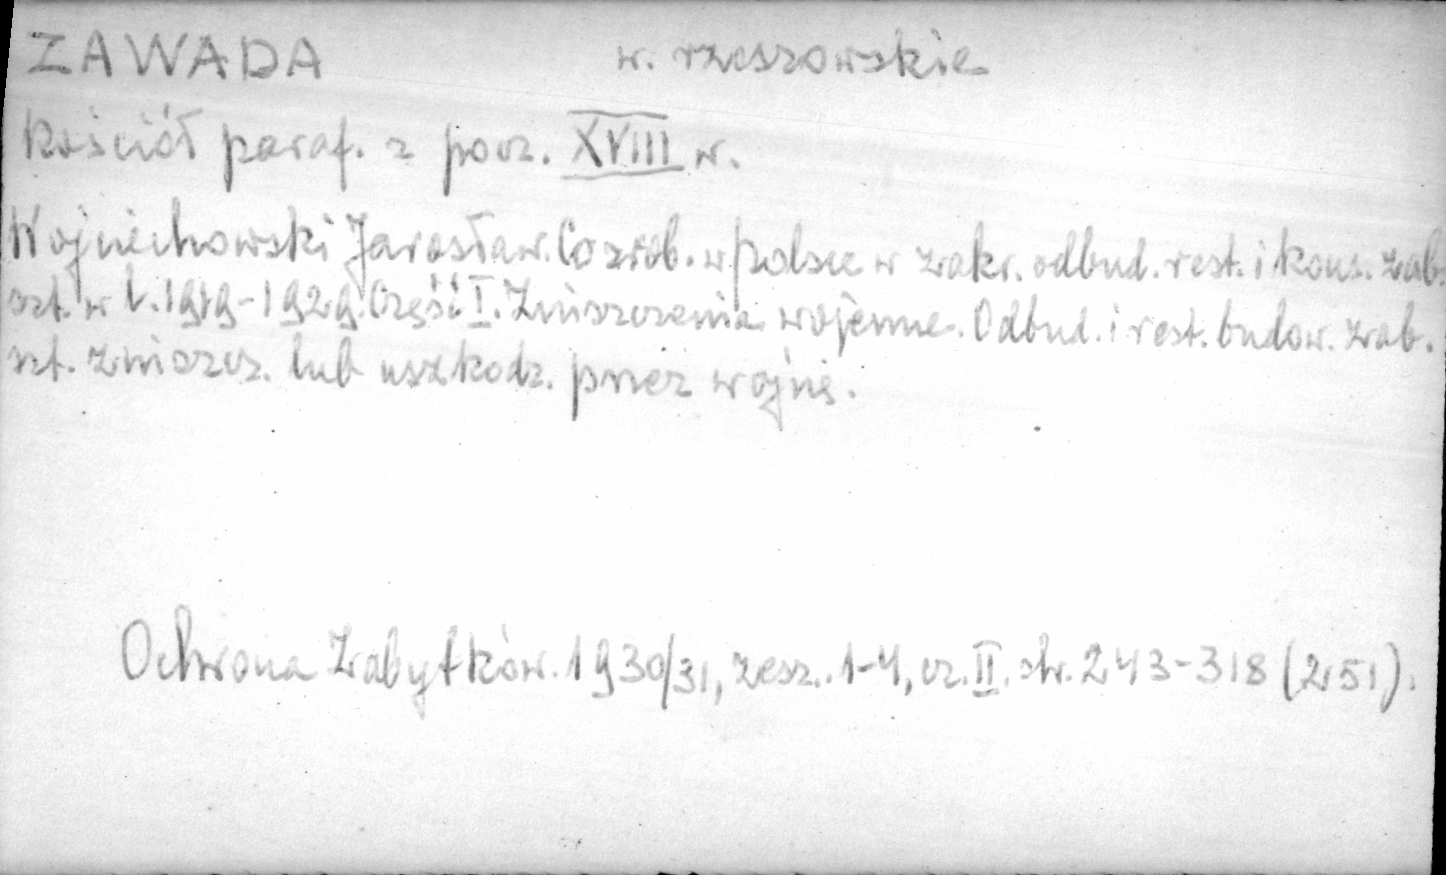 ZAWADA w. rzeszowskie
Kościół paraf. z pocz. XVIII w.
Wojciechowski Jarosław. Co zrob. w Polsce w zakr. odbud. rest. i kons. zab.
szt. w l. 1919-1929. Część I. Zniszczenia wojenne. Odbud. i rest. budow. zab.
szt. zniszcz. lub uszkodz. przez wojnę.
Ochrona Zabytków. 1930/31, zesz. 1-4, cz. II. str. 243-318 (251).